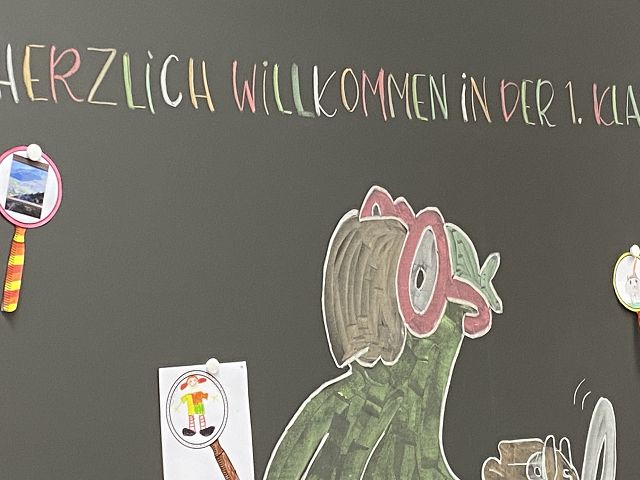 HERZLiCH WiLLKOMMEN iN DER 1. KLA